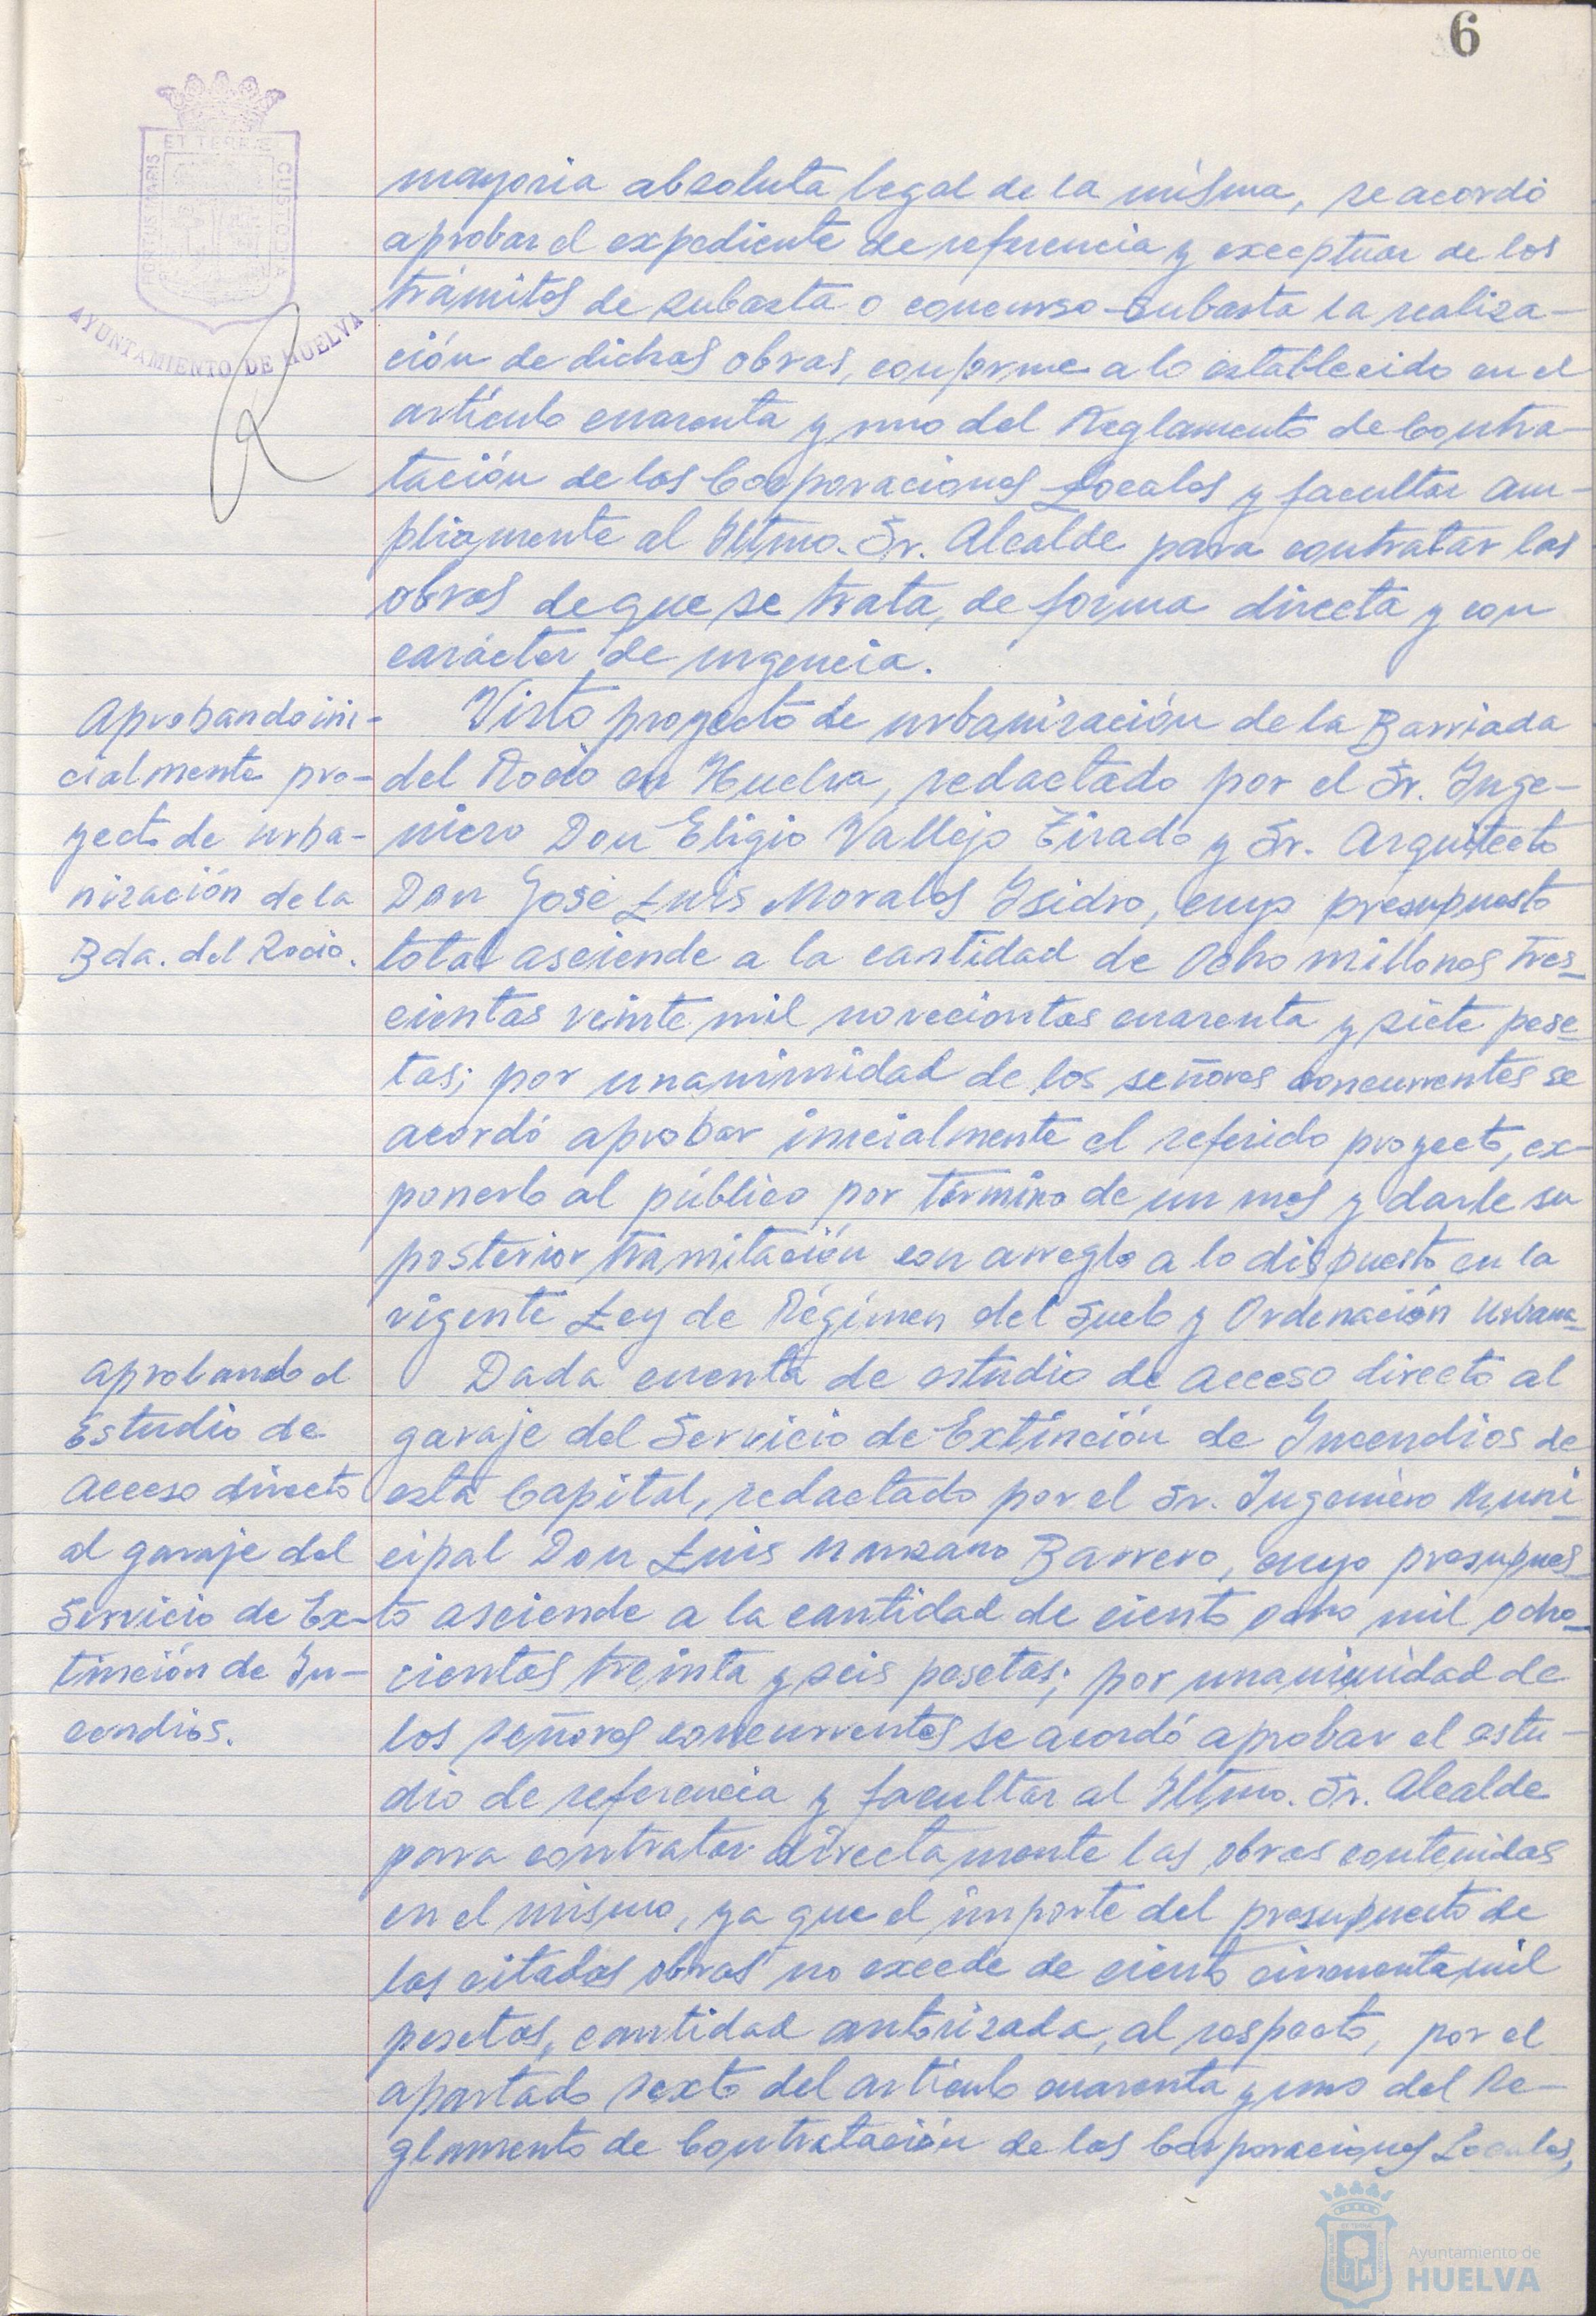 6
ET TERRAE
PORTUS MARIS
CUSTODIA
AYUNTAMIENTO DE HUELVA
mayoria absoluta legal de la misma, se acordó
aprobar el expediente de referencia y exceptuar de los
trámites de subasta o concurso-subasta la realiza-
ción de dichas obras, conforme a lo establecido en el
artículo cuarenta y uno del Reglamento de Contra-
tación de las Corporaciones Locales y facultar am-
pliamente al Iltmo. Sr. Alcalde para contratar las
obras de que se trata, de forma directa y con
carácter de urgencia.
Aprobando ini-
cialmente pro-
yecto de urba-
nización de la
Bda. del Rocio.
Visto proyecto de urbanización de la Barriada
del Rocio en Huelva, redactado por el Sr. Inge-
niero Don Eligio Vallejo Tirado y Sr. Arquitecto
Don José Luis Morales Isidro, cuyo presupuesto
total asciende a la cantidad de Ocho millones tres-
cientas veinte mil novecientas cuarenta y siete pese-
tas; por unanimidad de los señores concurrentes se
acordó aprobar inicialmente el referido proyecto, ex-
ponerlo al público por término de un mes y darle su
posterior tramitación con arreglo a lo dispuesto en la
vigente Ley de Régimen del Suelo y Ordenación Urbana.
Aprobando el
Estudio de
Acceso directo
al garaje del
Servicio de Ex-
tinción de In-
cendios.
Dada cuenta de estudio de Acceso directo al
garaje del Servicio de Extinción de Incendios de
esta Capital, redactado por el Sr. Ingeniero Muni-
cipal Don Luis Manzano Barrero, cuyo presupues-
to asciende a la cantidad de ciento ocho mil ocho-
cientas treinta y seis pesetas; por unanimidad de
los señores concurrentes se acordó aprobar el estu-
dio de referencia y facultar al Iltmo. Sr. Alcalde
para contratar directamente las obras contenidas
en el mismo, ya que el importe del presupuesto de
las citadas obras no excede de ciento cincuenta mil
pesetas, cantidad autorizada, al respecto, por el
apartado sexto del artículo cuarenta y uno del Re-
glamento de Contratación de las Corporaciones Locales,
Ayuntamiento de
HUELVA